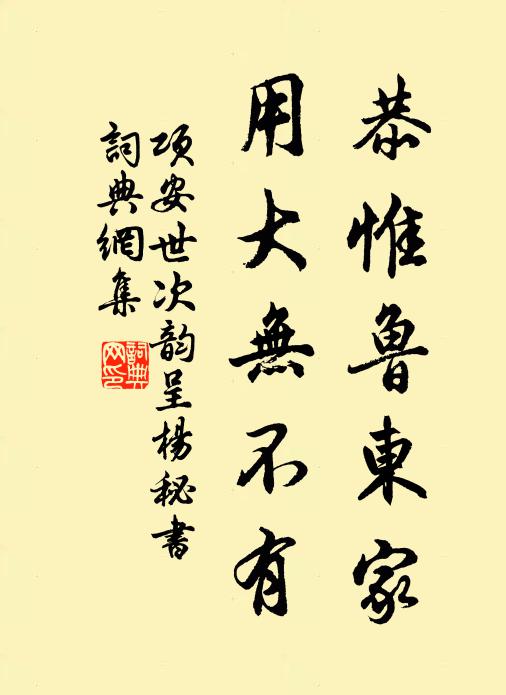 恭惟魯東家
用大無不有
項安世次韵呈楊秘書
詞典網集
詞典网印